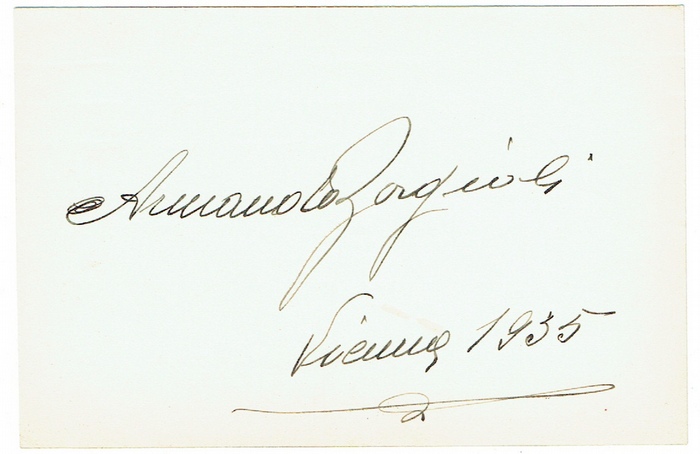 Armando Borgioli
Vienna 1935